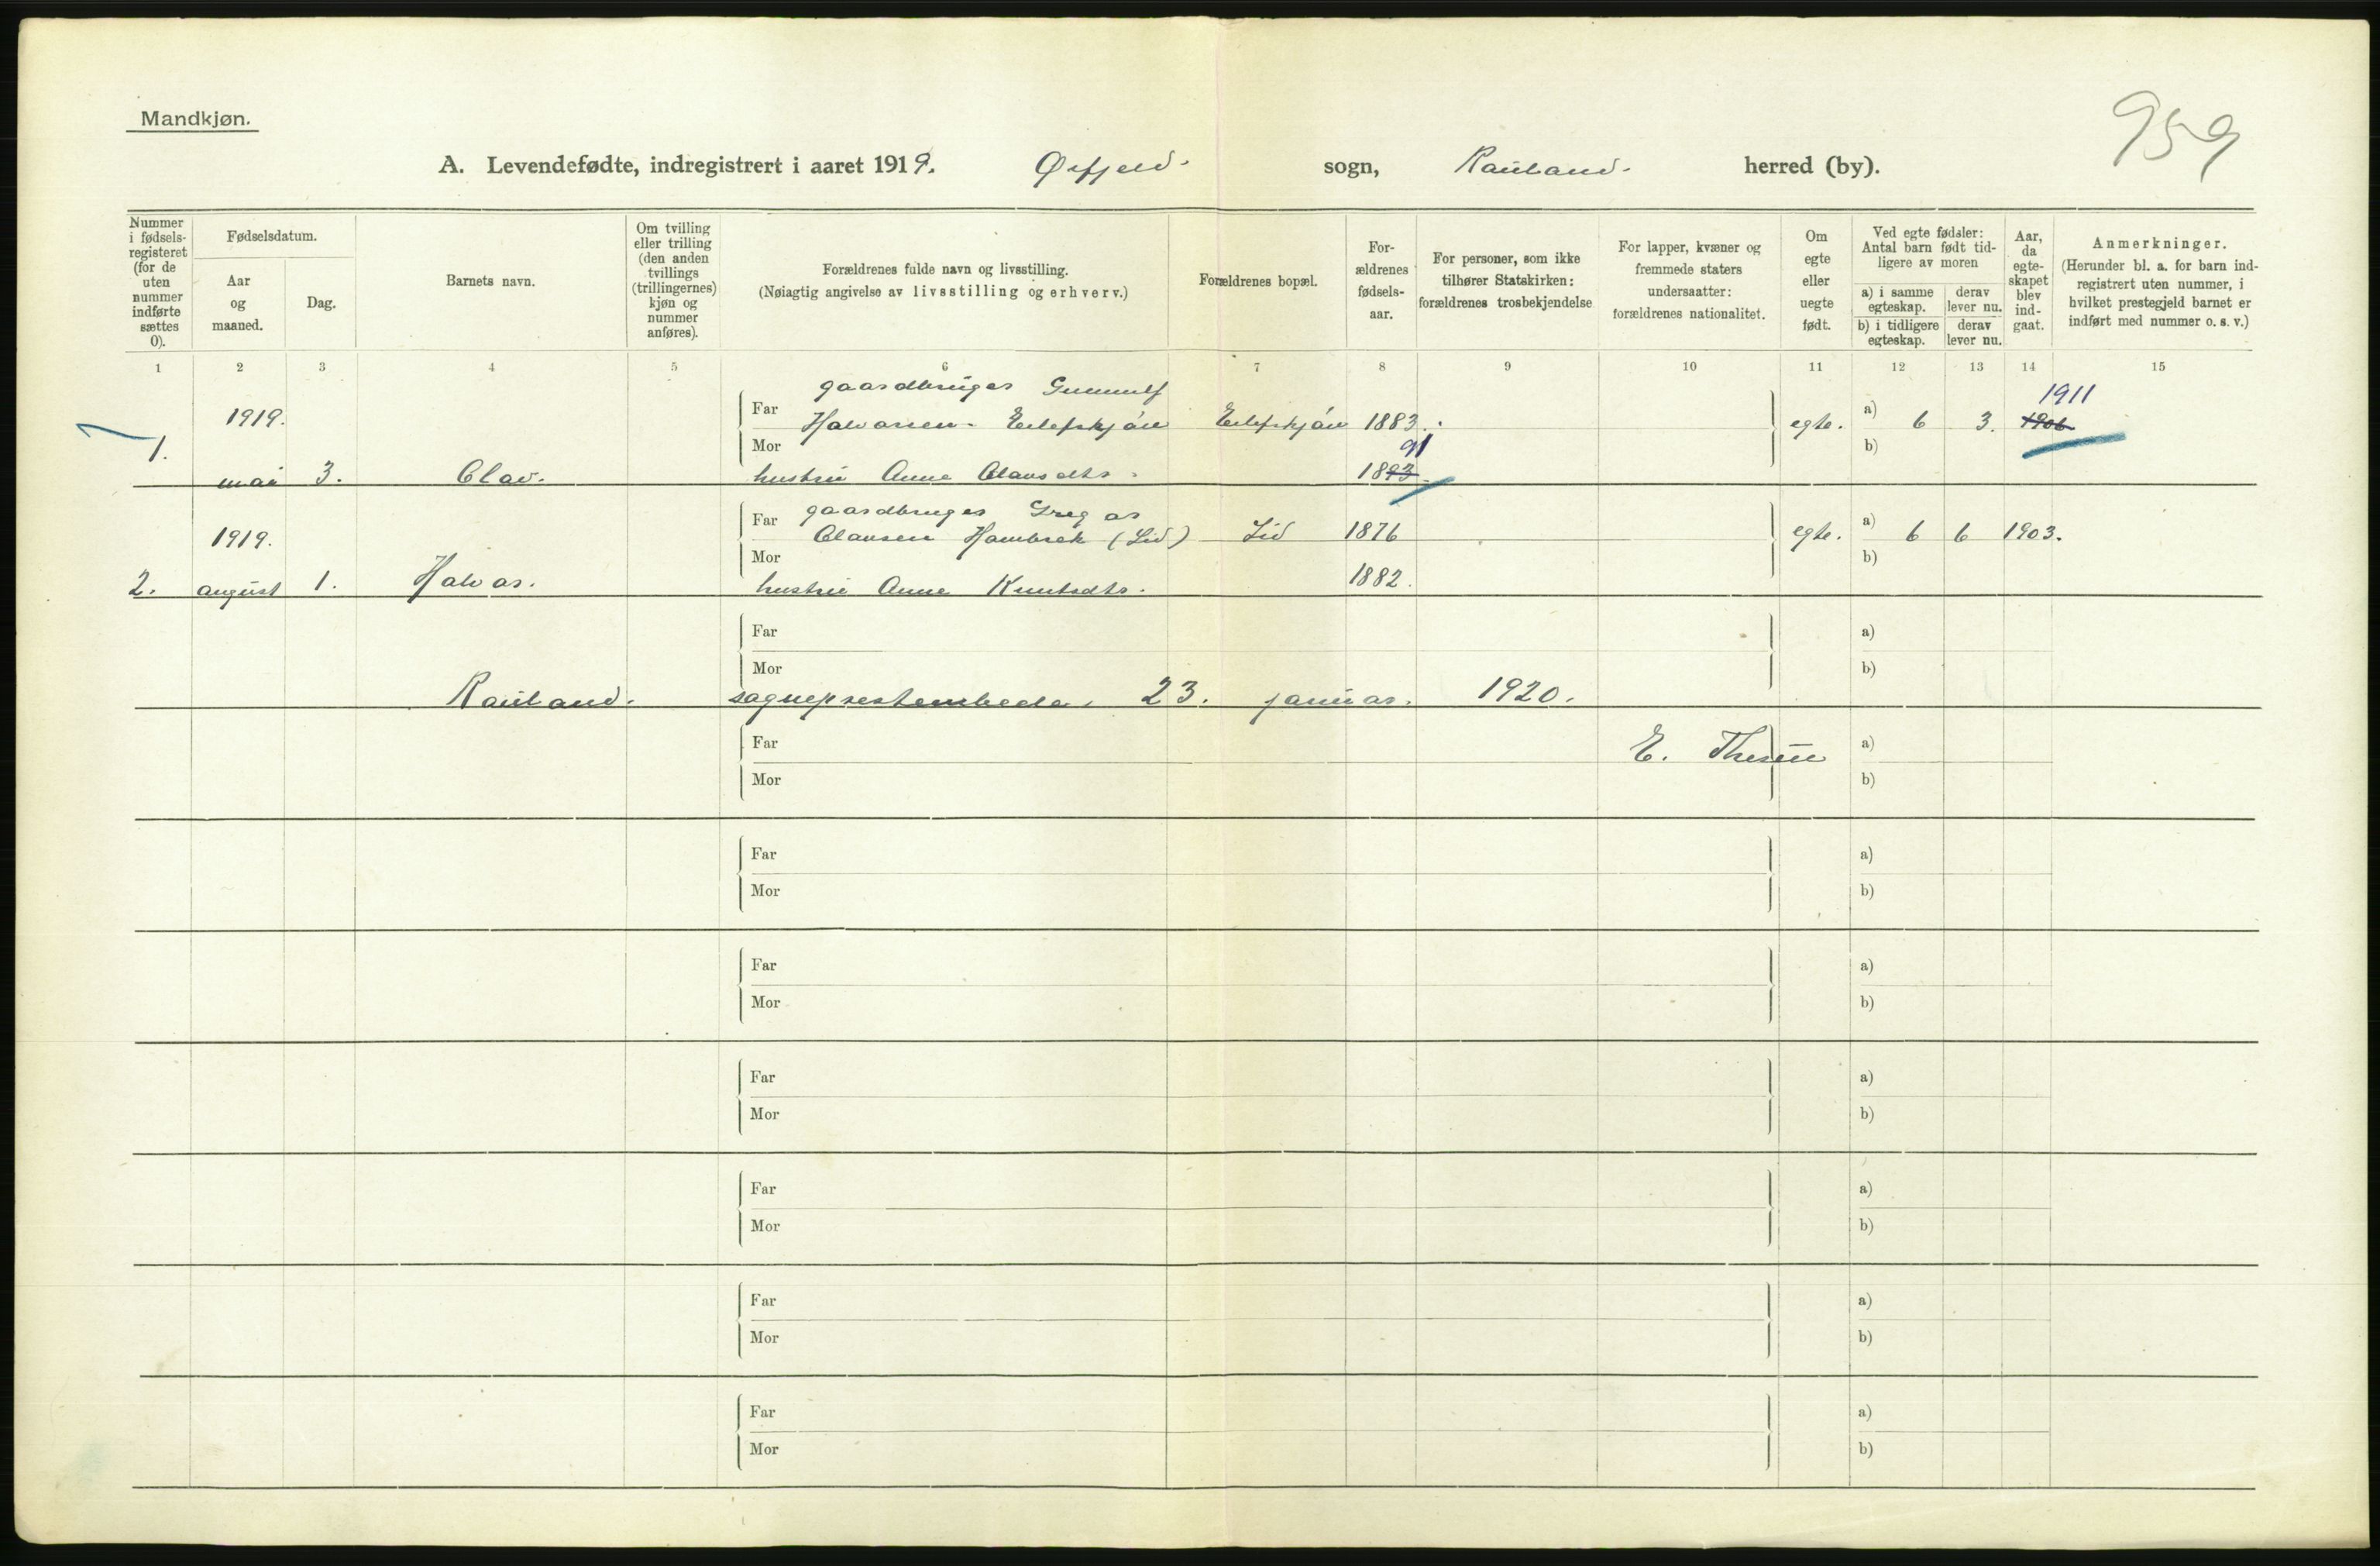 Mandkjøn.
959
A. Levendefødte, indregistrert i aaret 1919. Øifjeld. sogn, Rauland. herred (by).
Nummer i fødselsregisteret (for de uten nummer indførte sættes 0).
Fødselsdatum.
Aar og maaned.
Dag.
Barnets navn.
Om tvilling eller trilling (den anden tvillings (trillingernes) kjøn og nummer anføres).
Forældrenes fulde navn og livsstilling.
(Nøiagtig angivelse av livsstilling og erhverv.)
Forældrenes bopæl.
Forældrenes fødselsaar.
For personer, som ikke tilhører Statskirken: forældrenes trosbekjendelse
For lapper, kvæner og fremmede staters undersaatter: forældrenes nationalitet.
Om egte eller uegte født.
Ved egte fødsler: Antal barn født tidligere av moren
a) i samme egteskap. derav lever nu.
b) i tidligere egteskap. derav lever nu.
Aar, da egteskapet blev indgaat.
Anmerkninger.
(Herunder bl. a. for barn indregistrert uten nummer, i hvilket prestegjeld barnet er indført med nummer o. s. v.)
1 2 3 4 5 6 7 8 9 10 11 12 13 14 15
gaardbruger Gunnulf 1911
1919. Far Halvorsen 1883. egte. a) 6 3. 1906
1. Mor 91 b)
mai 3. Olav. hustru Anne Olavsdtr. 1893.
Far gaardbruger Gregar
1919. Olavsen Hambrek (Lid) Lid 1876 egte. a) 6 6 1903.
Mor b)
2. august 1. Halvor. hustru Anne Knutsdtr. 1882.
Far a)
Mor b)
Rauland. sogneprestembede, 23. januar. 1920.
Far E. Thesen a)
Mor b)
Far a)
Mor b)
Far a)
Mor b)
Far a)
Mor b)
Far a)
Mor b)
Far a)
Mor b)
Far a)
Mor b)